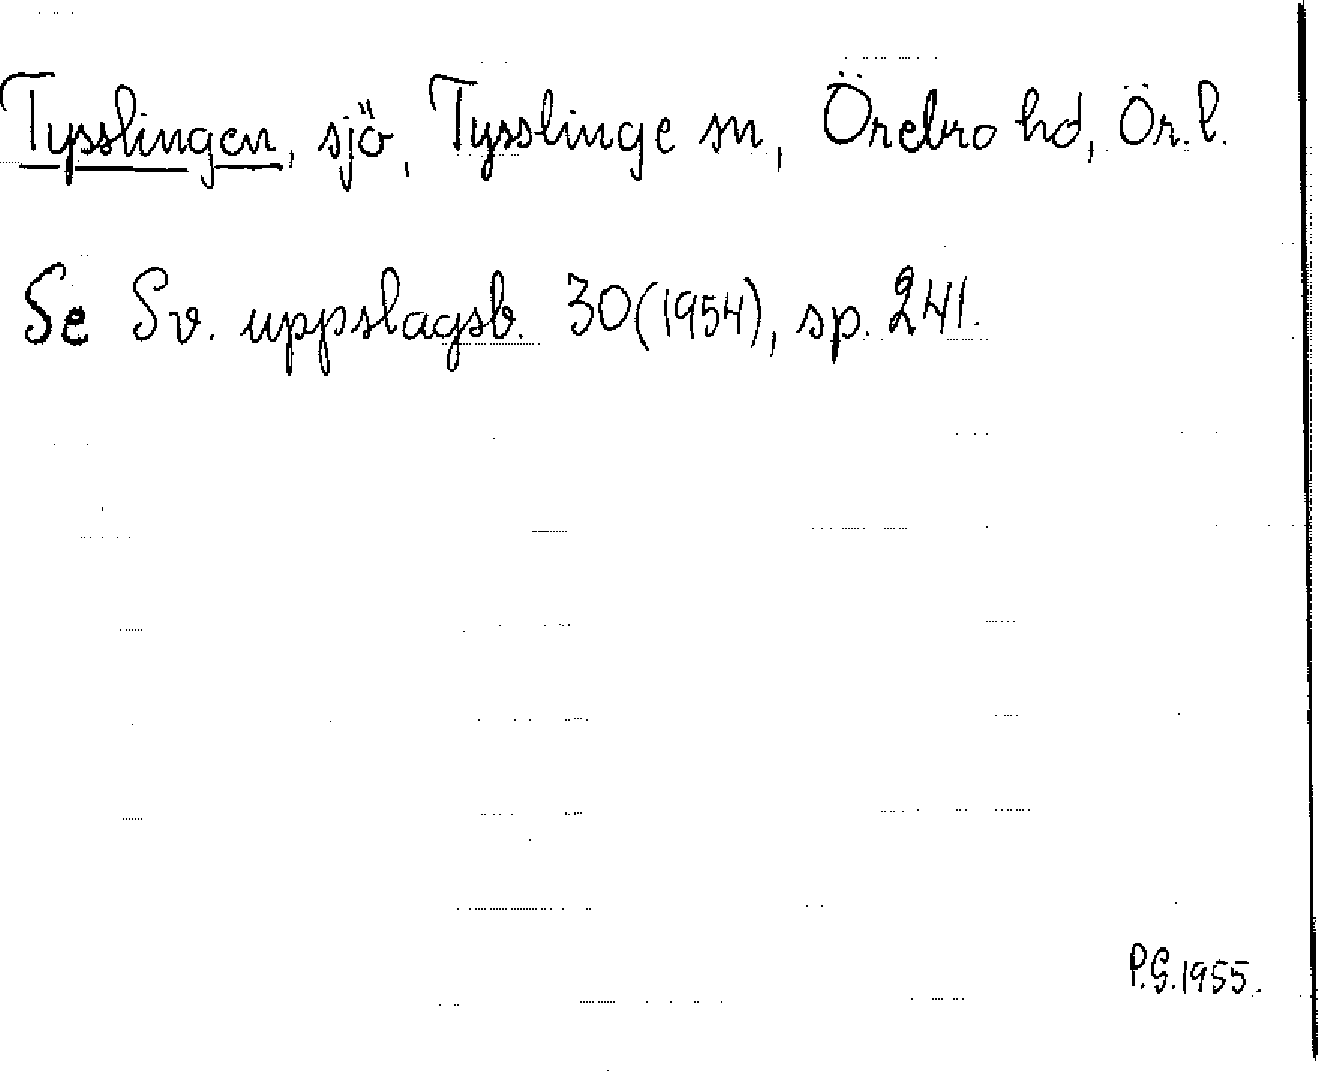 Tysslingen, sjö, Tysslinge sn, Örebro hd, Ör. l.
Se Sv. uppslagsb. 30 (1954), sp. 241.
P.G. 1955.